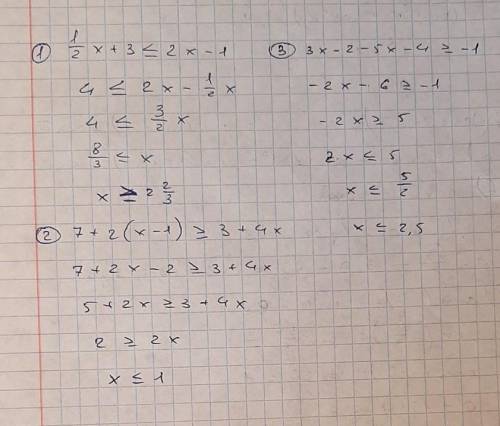 ① 1/2 x + 3 ≤ 2x - 1
4 ≤ 2x - 1/2 x
4 ≤ 3/2 x
8/3 ≤ x
x ≥ 2 2/3
② 7 + 2(x - 1) ≥ 3 + 4x
7 + 2x - 2 ≥ 3 + 4x
5 + 2x ≥ 3 + 4x
2 ≥ 2x
x ≤ 1
③ 3x - 2 - 5x - 4 ≥ -1
-2x - 6 ≥ -1
-2x ≥ 5
2x ≤ 5
x ≤ 5/2
x ≤ 2,5